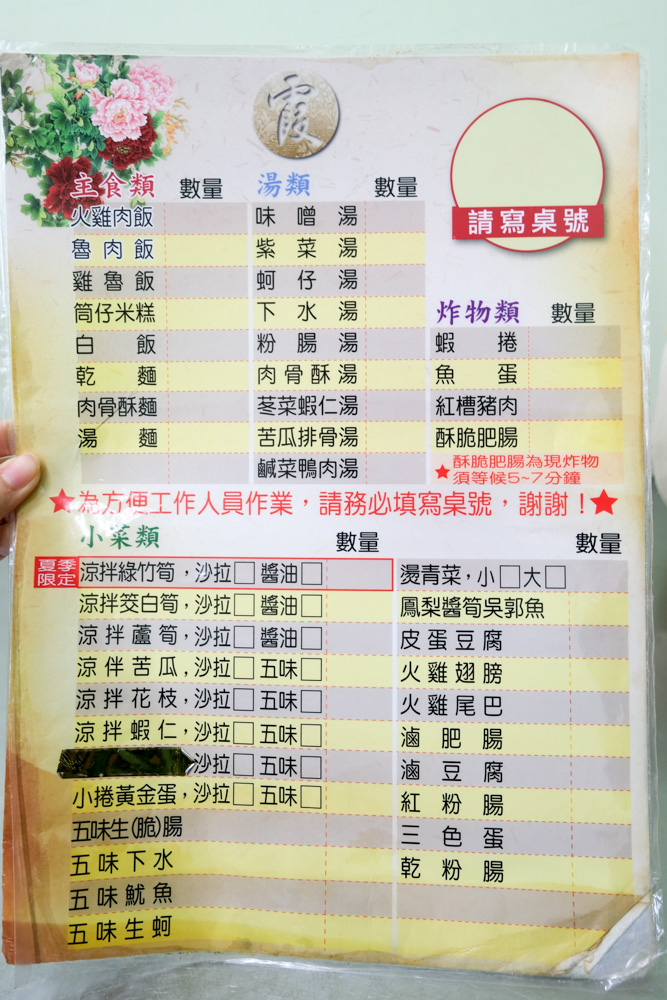 霞
請寫桌號
主食類 數量
火雞肉飯
魯肉飯
雞魯飯
筒仔米糕
白飯
乾麵
肉骨酥麵
湯麵
湯類 數量
味噌湯
紫菜湯
蚵仔湯
下水湯
粉腸湯
肉骨酥湯
茎菜蝦仁湯
苦瓜排骨湯
鹹菜鴨肉湯
炸物類 數量
蝦捲
魚蛋
紅槽豬肉
酥脆肥腸
★酥脆肥腸為現炸物
須等候5~7分鐘
★為方便工作人員作業，請務必填寫桌號，謝謝！★
小菜類 數量
夏季
限定
涼拌綠竹筍，沙拉□醬油□
涼拌筊白筍，沙拉□醬油□
涼拌蘆筍，沙拉□醬油□
涼伴苦瓜，沙拉□五味□
涼拌花枝，沙拉□五味□
涼拌蝦仁，沙拉□五味□
沙拉□五味□
小捲黃金蛋，沙拉□五味□
五味生(脆)腸
五味下水
五味魷魚
五味生蚵
數量
燙青菜，小□大□
鳳梨醬筍吳郭魚
皮蛋豆腐
火雞翅膀
火雞尾巴
滷肥腸
滷豆腐
紅粉腸
三色蛋
乾粉腸